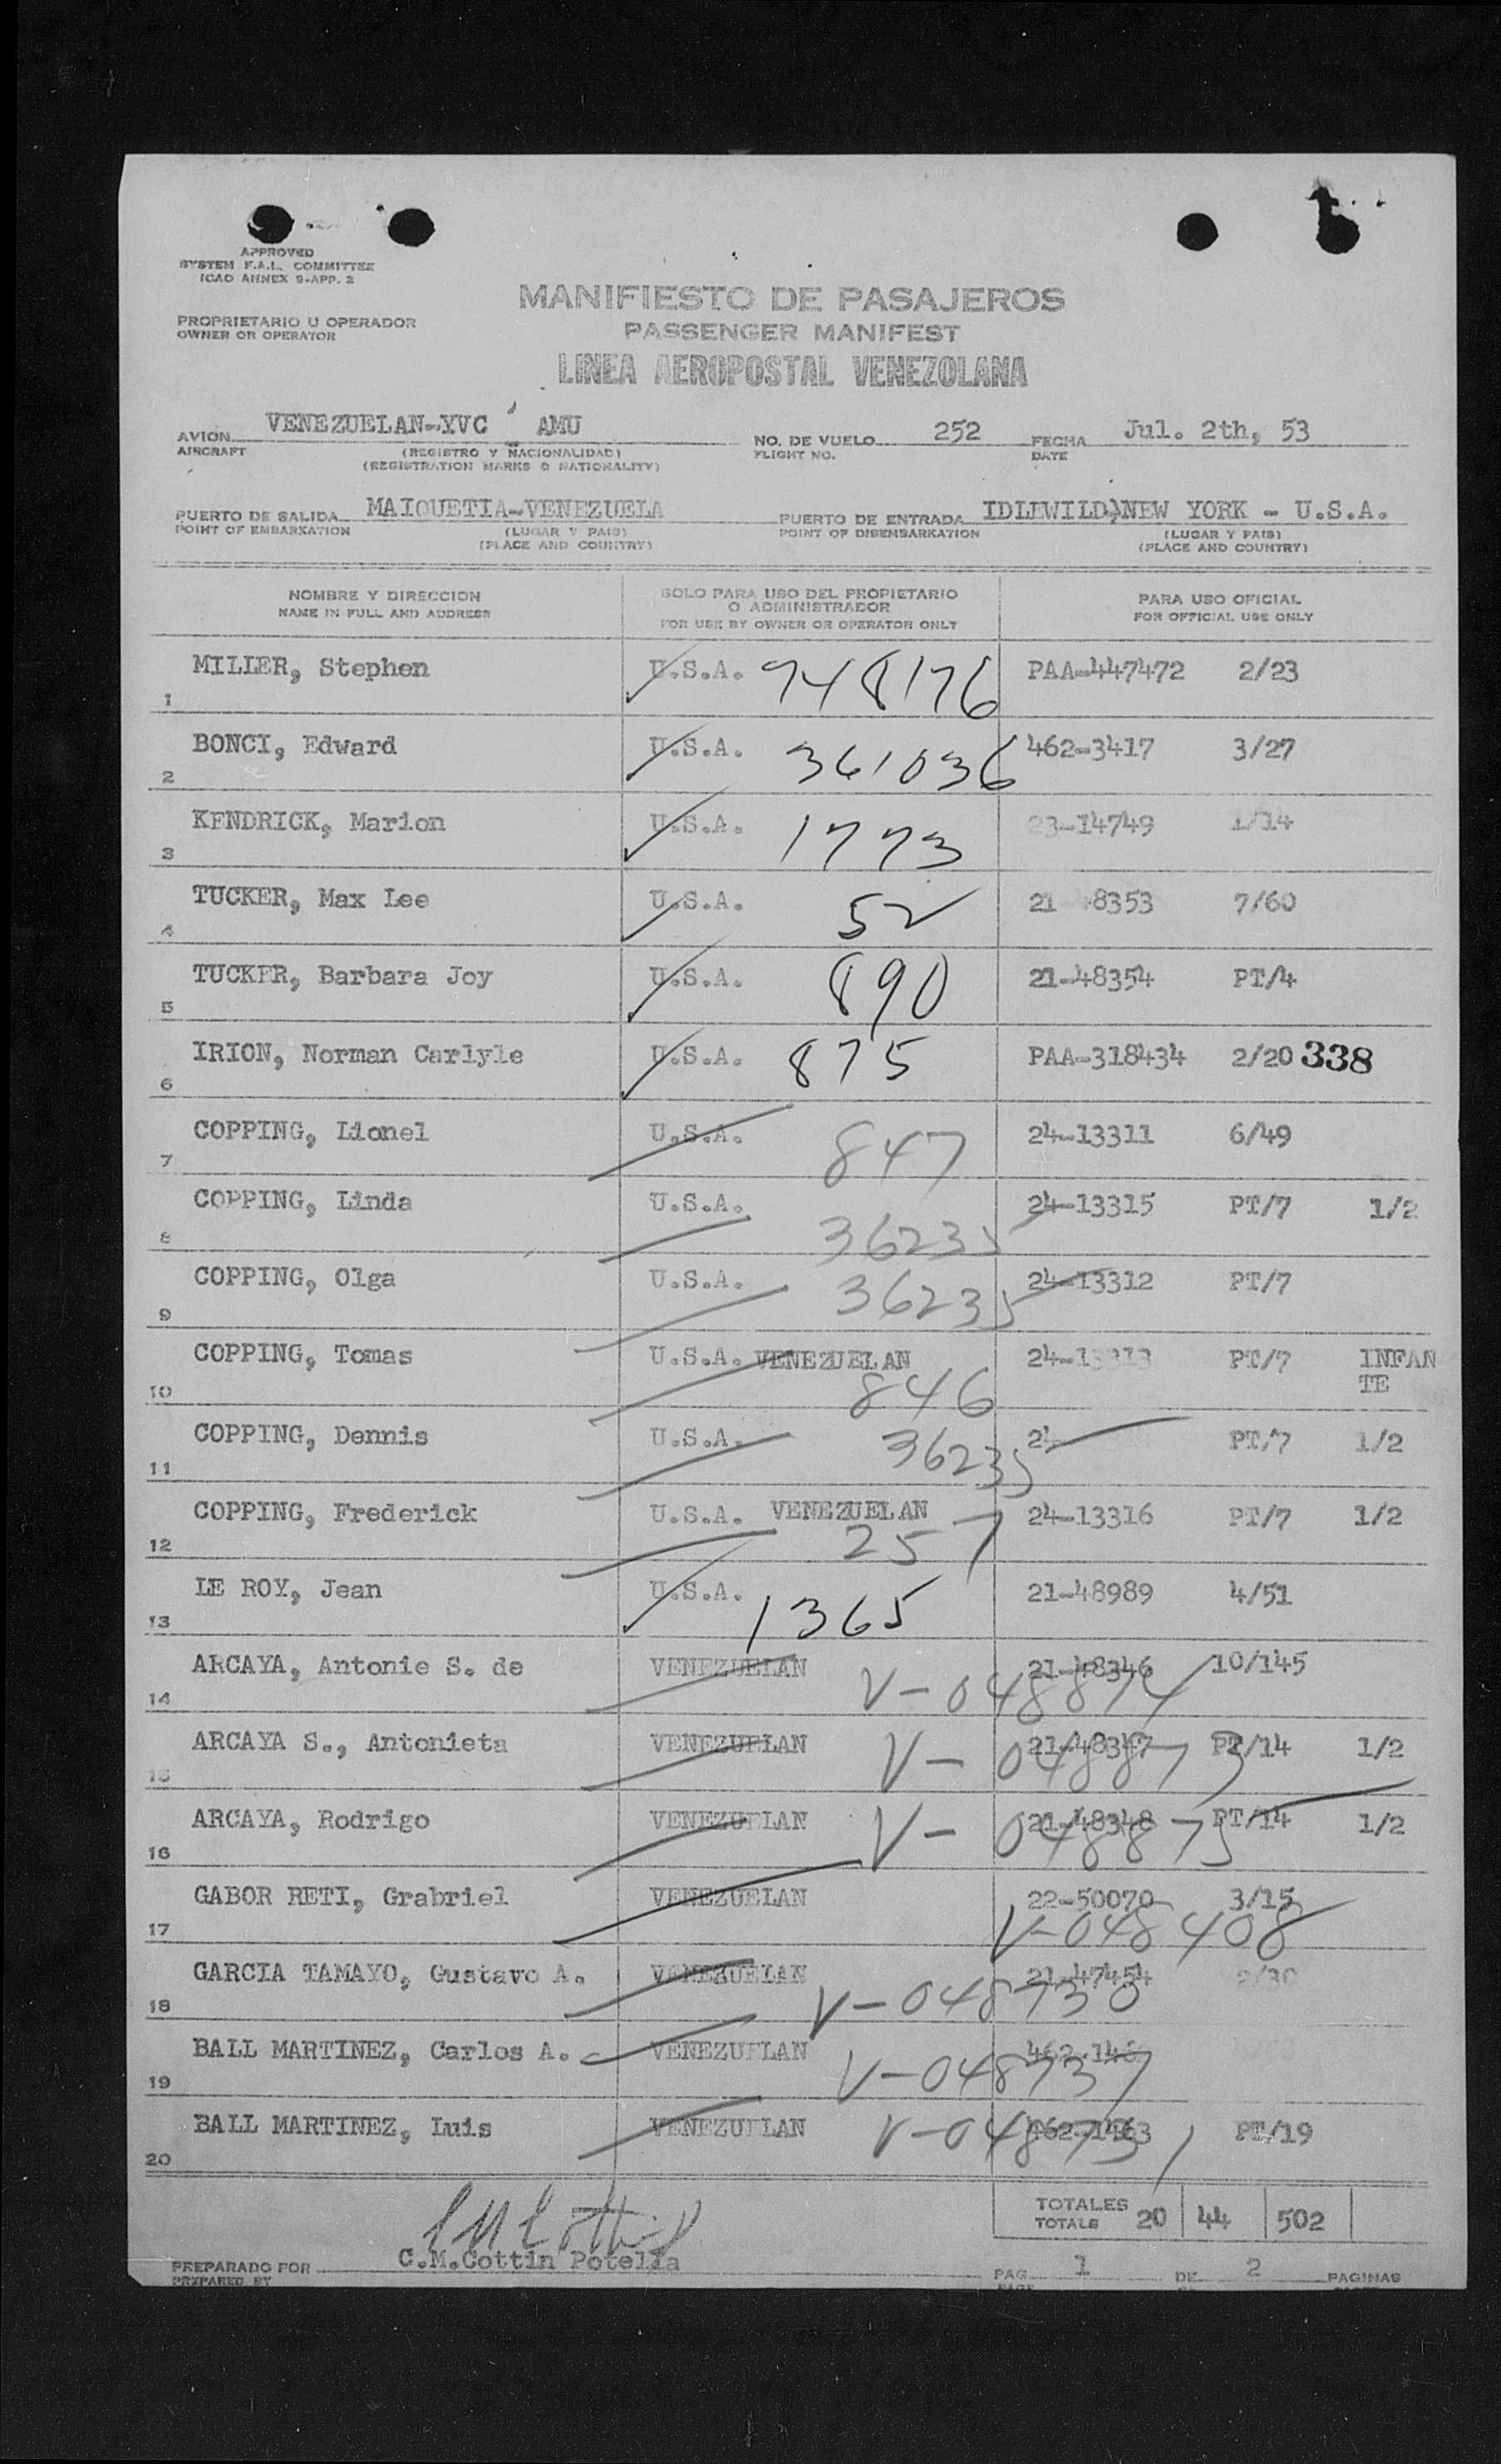 APPROVED
SYSTEM F.A.L. COMMITTEE
ICAO ANNEX 9-APP. 2
MANIFIESTO DE PASAJEROS
PASSENGER MANIFEST
LINEA AEROPOSTAL VENEZOLANA
PROPRIETARIO U OPERADOR
OWNER OR OPERATOR
AVION VENEZUELAN-YVC AMU NO. DE VUELO 252 FECHA Jul. 2th, 53
AIRCRAFT (REGISTRO Y NACIONALIDAD) FLIGHT NO. DATE
(REGISTRATION MARKS & NATIONALITY)
PUERTO DE SALIDA MAIQUETIA-VENEZUELA PUERTO DE ENTRADA IDLEWILD,NEW YORK - U.S.A.
POINT OF EMBARKATION (LUGAR Y PAIS) POINT OF DISEMBARKATION (LUGAR Y PAIS)
(PLACE AND COUNTRY) (PLACE AND COUNTRY)
NOMBRE Y DIRECCION SOLO PARA USO DEL PROPIETARIO PARA USO OFICIAL
NAME IN FULL AND ADDRESS O ADMINISTRADOR FOR OFFICIAL USE ONLY
FOR USE BY OWNER OR OPERATOR ONLY
1 MILLER, Stephen U.S.A. 748176 PAA-447472 2/23
2 BONCI, Edward U.S.A. 361036 462-3417 3/27
3 KENDRICK, Marion U.S.A. 1773 23-14749 1/14
4 TUCKER, Max Lee U.S.A. 52 21 8353 7/60
5 TUCKER, Barbara Joy U.S.A. 890 21-48354 PT/4
6 IRION, Norman Carlyle U.S.A. 875 PAA-318434 2/20 338
7 COPPING, Lionel U.S.A. 847 24-13311 6/49
8 COPPING, Linda U.S.A. 36235 24-13315 PT/7 1/2
9 COPPING, Olga U.S.A. 36235 24-13312 PT/7
10 COPPING, Tomas U.S.A. VENEZUELAN 846 24-13313 PT/7 INFAN
TE
11 COPPING, Dennis U.S.A. 36235 24 PT/7 1/2
12 COPPING, Frederick U.S.A. VENEZUELAN 257 24-13316 PT/7 1/2
13 LE ROY, Jean U.S.A. 1365 21-48989 4/51
14 ARCAYA, Antonie S. de VENEZUELAN V-048874 21-48346 10/145
15 ARCAYA S., Antonieta VENEZUELAN V-048873 21-48347 PT/14 1/2
16 ARCAYA, Rodrigo VENEZUELAN V-048875 21-48348 PT/14 1/2
17 GABOR RETI, Grabriel VENEZUELAN 22-50070 3/15
V-048408
18 GARCIA TAMAYO, Gustavo A. VENEZUELAN V-048730 21-47454 2/30
19 BALL MARTINEZ, Carlos A. VENEZUELAN V-048737 462-146
20 BALL MARTINEZ, Luis VENEZUELAN 462-1463 PT/19
TOTALES 20 44 502
TOTALS
PREPARADO POR C.M.Cottin Potella
PREPARED BY
PAG. 1 DE 2 PAGINAS